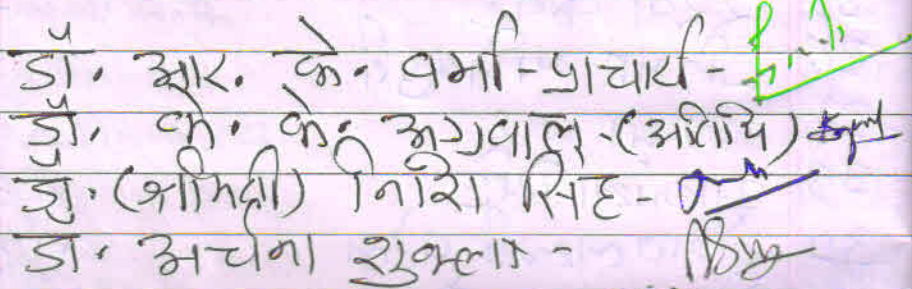 डॉ. आर. के. वर्मा - प्राचार्य -
डॉ. के. के. अग्रवाल - (अतिथि)
डॉ. (श्रीमती) सिंह -
डॉ. अर्चना शुक्ला -